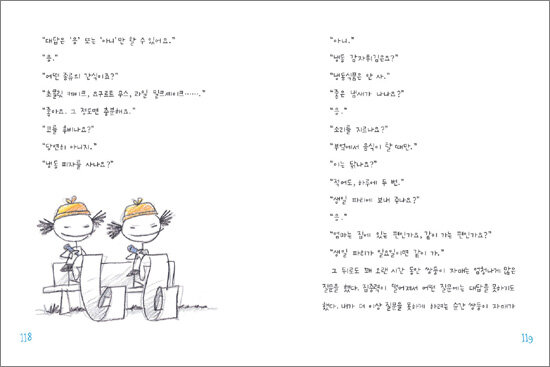 "대답은 '응' 또는 '아니'만 할 수 있어요."
"응."
"어떤 종류의 간식이죠?"
"초콜릿 케이크, 요구르트 무스, 과일 밀크셰이크……."
"좋아요. 그 정도면 충분해요."
"코를 후비나요?"
"당연히 아니지."
"냉동 피자를 사나요?"
118
"아니."
"냉동 감자튀김은요?"
"냉동식품은 안 사."
"좋은 냄새가 나나요?"
"응."
"소리를 지르나요?"
"부엌에서 음식이 탈 때만."
"이는 닦나요?"
"적어도, 하루에 두 번."
"생일 파티에 보내 주나요?"
"응."
"엄마는 집에 있는 편인가요, 같이 가는 편인가요?"
"생일 파티가 일요일이면 같이 가."
그 뒤로도 꽤 오랜 시간 동안 쌍둥이 자매는 엄청나게 많은
질문을 했다. 집중력이 떨어져서 어떤 질문에는 대답을 못하기도
했다. 내가 더 이상 질문을 못하게 하려는 순간 쌍둥이 자매가
119